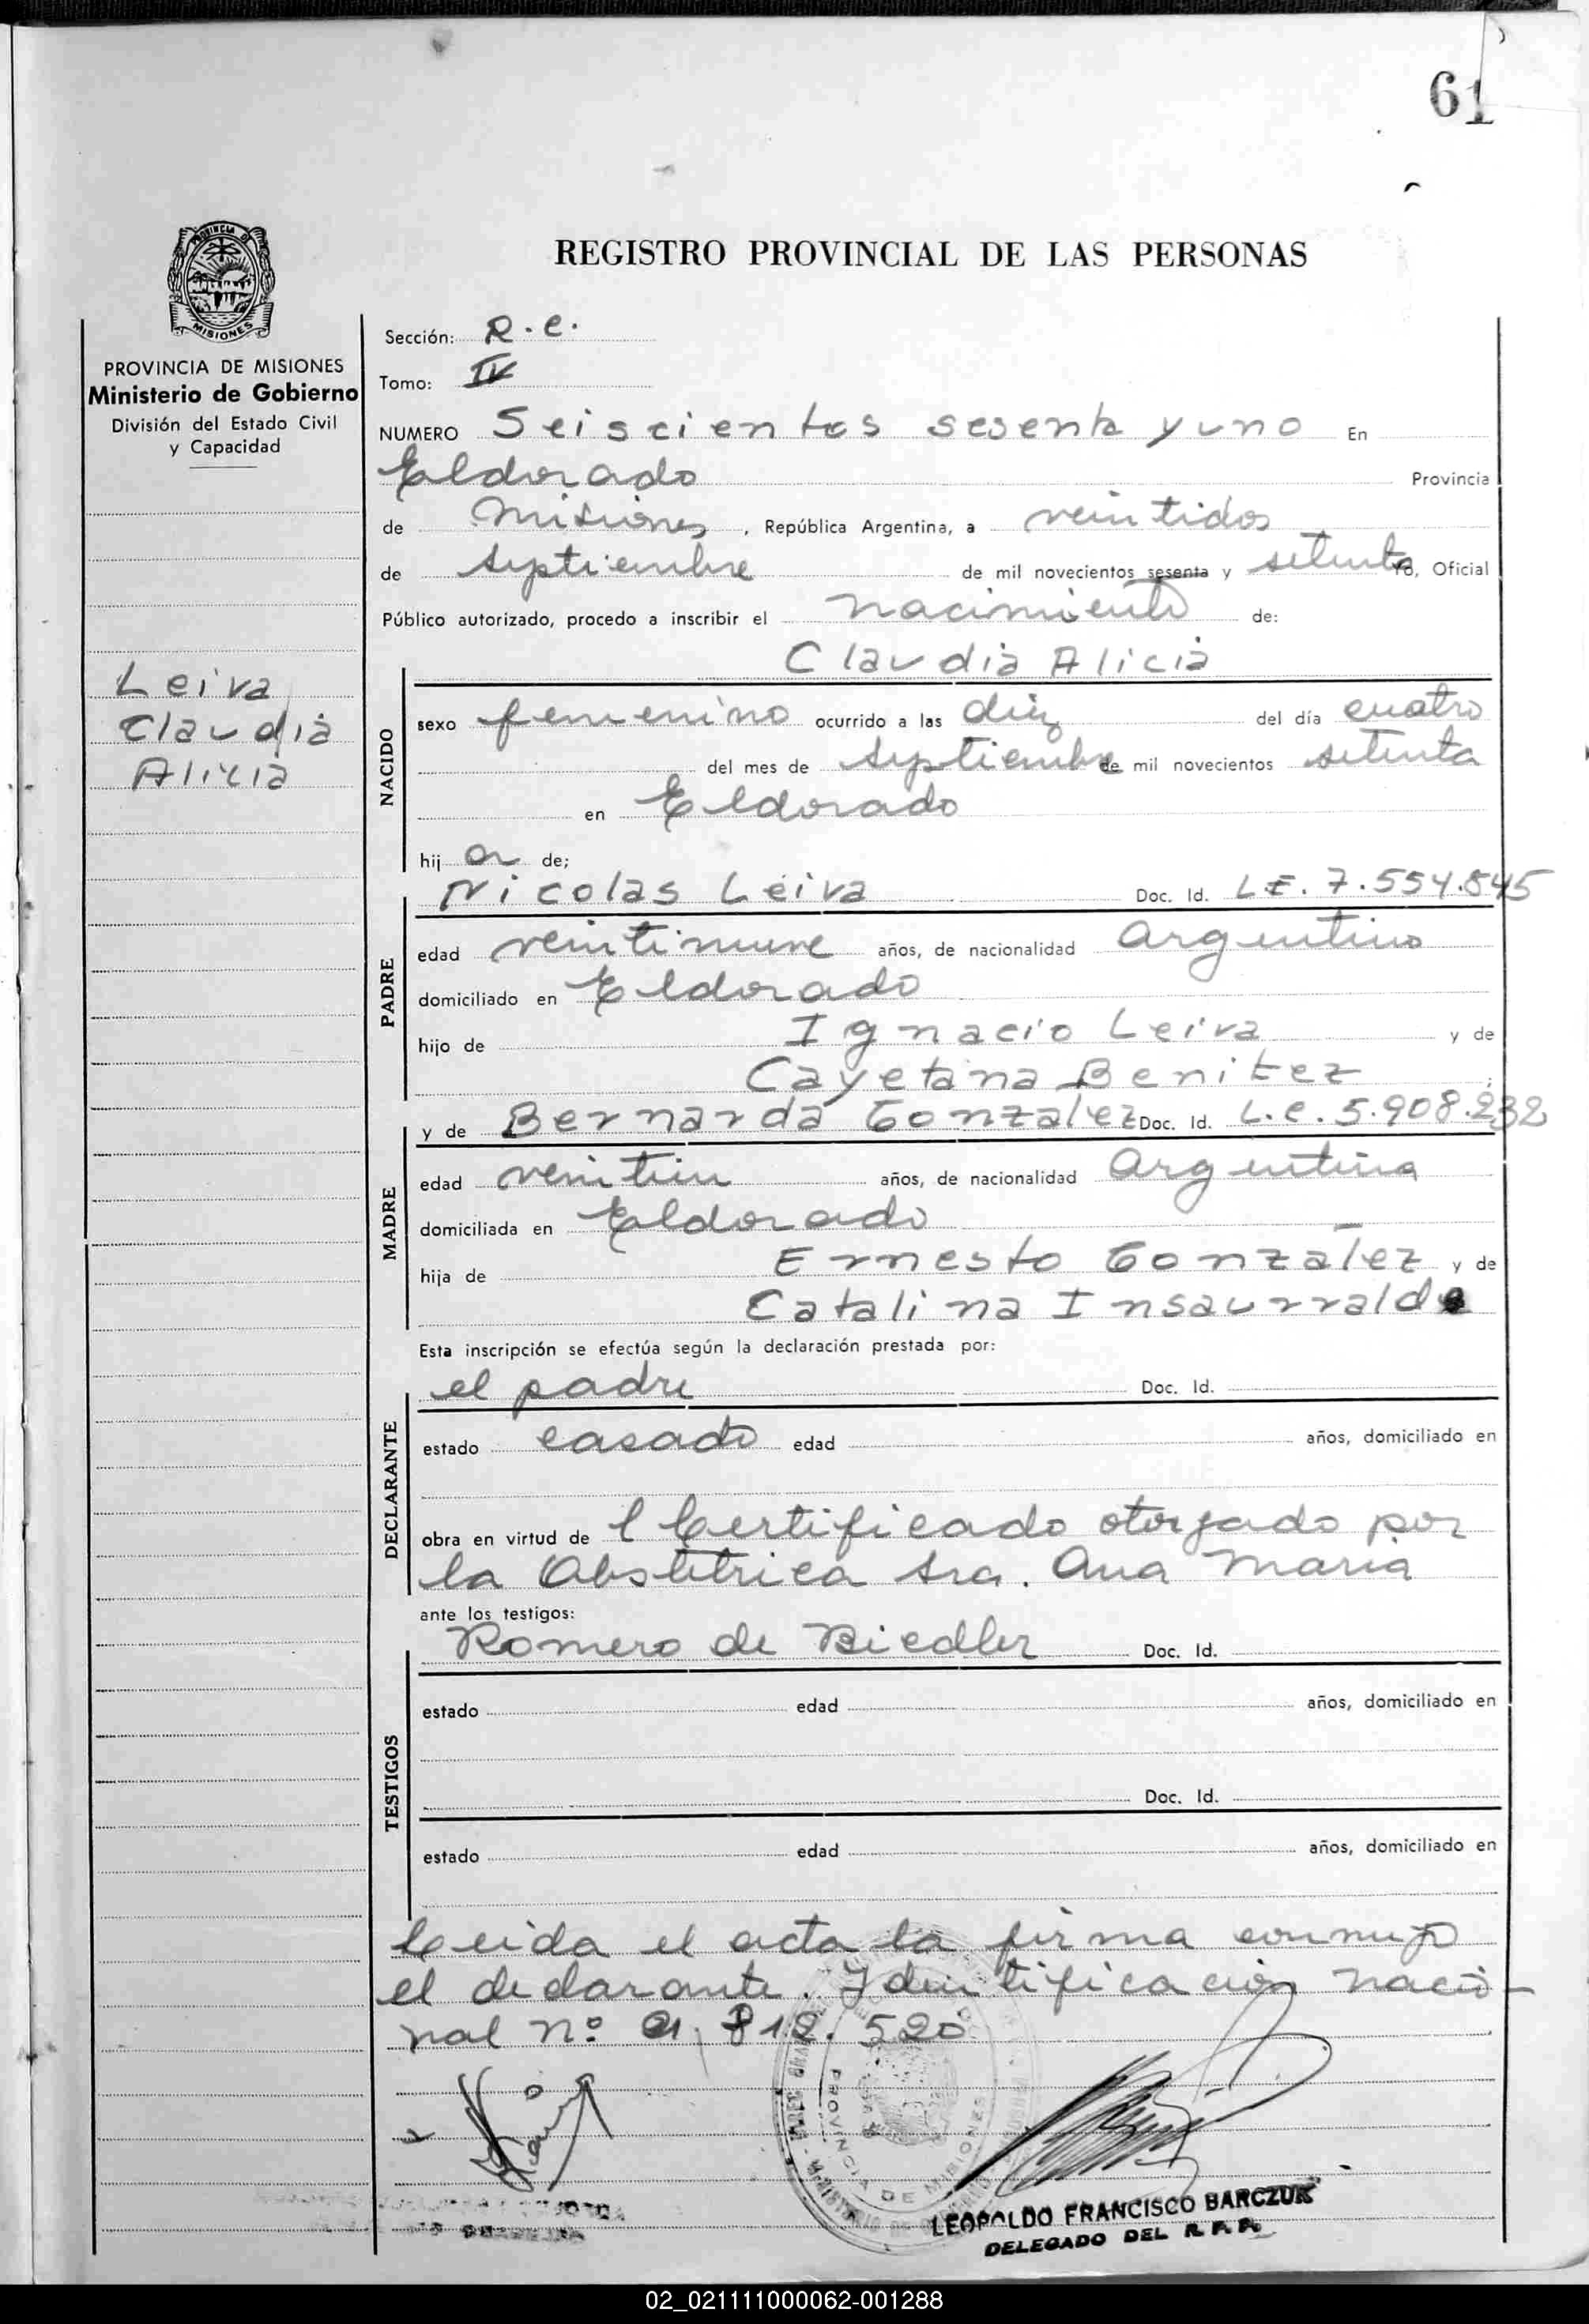 61
REGISTRO PROVINCIAL DE LAS PERSONAS
PROVINCIA DE
MISIONES
PROVINCIA DE MISIONES
Ministerio de Gobierno
División del Estado Civil
y Capacidad
Leiva
Claudia
Alicia
Sección: R.C.
Tomo: IV
NUMERO Seiscientos sesenta y uno En
Eldorado Provincia
de Misiones, República Argentina, a veintidos
de septiembre de mil novecientos sesenta y setenta Yo, Oficial
Público autorizado, procedo a inscribir el nacimiento de:
Claudia Alicia
NACIDO
sexo femenino ocurrido a las diez del día cuatro
del mes de septiembre de mil novecientos setenta
en Eldorado
hij a de;
Nicolas Leiva Doc. Id. L.E. 7.554.845
PADRE
edad veintinueve años, de nacionalidad Argentino
domiciliado en Eldorado
hijo de Ignacio Leiva y de
Cayetana Benitez
y de Bernarda Gonzalez Doc. Id. L.C. 5.908.232
MADRE
edad veintiun años, de nacionalidad Argentina
domiciliada en Eldorado
hija de Ernesto Gonzalez y de
Catalina Insaurralde
Esta inscripción se efectúa según la declaración prestada por:
el padre Doc. Id.
DECLARANTE
estado casado edad años, domiciliado en
obra en virtud de l Certificado otorgado por
la Obstetrica Sra. Ana Maria
ante los testigos:
Romero de Biedler Doc. Id.
TESTIGOS
estado edad años, domiciliado en
Doc. Id.
estado edad años, domiciliado en
Leida el acta la firma conmigo
el declarante. Identificación nacio-
nal nº 21.812.520
PROVINCIA DE MISIONES
LEOPOLDO FRANCISCO BARCZUK
DELEGADO DEL R.P.P.
02_021111000062-001288